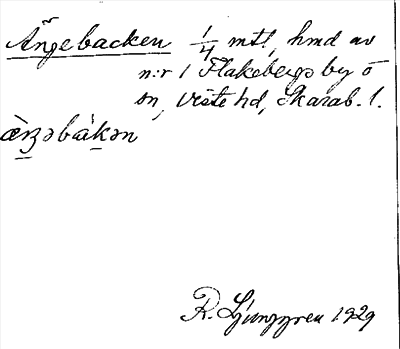 Ängebacken 1/4 mtl, hmd av
n:r 1 Flakebergs by o
sn, Viste hd, Skarab. l.
æ̀ŋʒəbákən
R. Ljunggren 1929